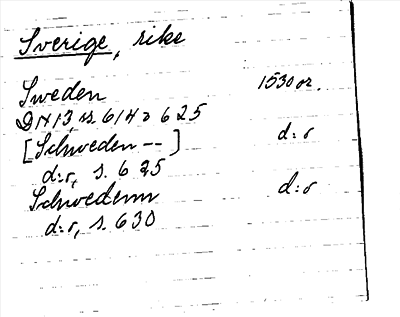 Sverige, rike
Sweden 1530 or.
DN13, s. 614 o 625
[Schweden --] d:o
d:o, s. 625
Schwedenn d:o
d:o, s. 630